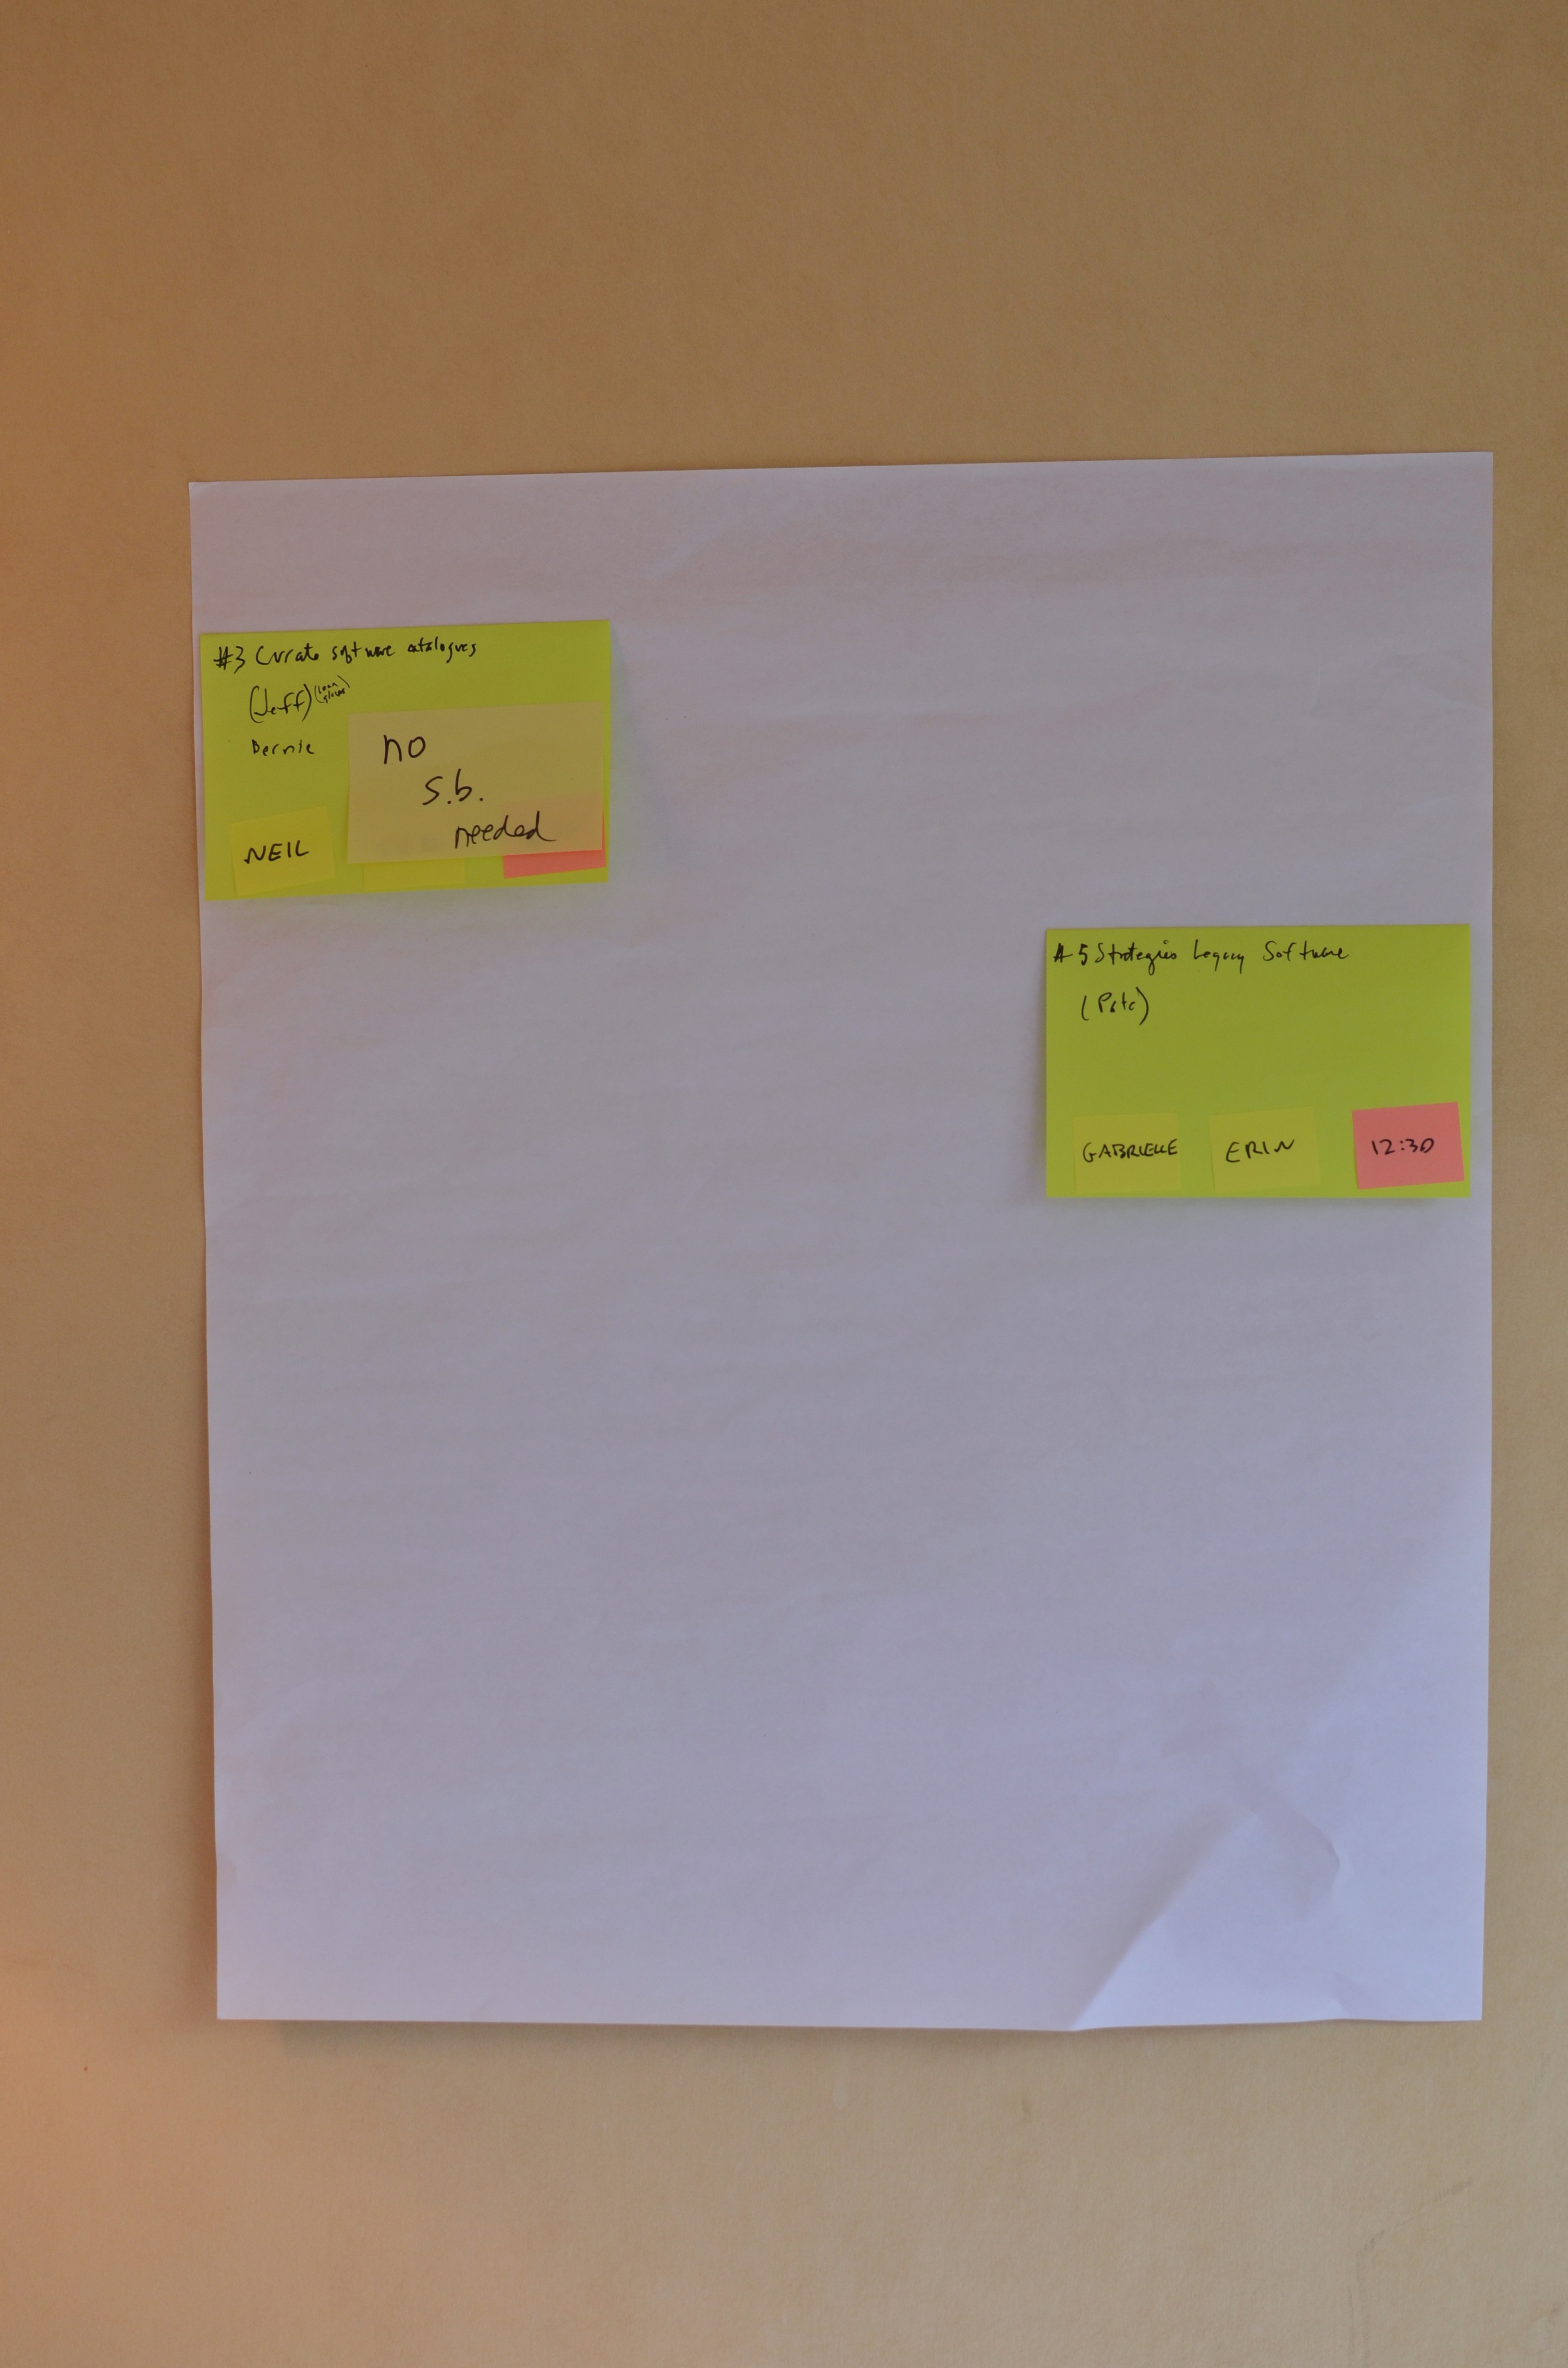 #3 Curate software catalogues
(Jeff)
Bernie
no
s.b.
needed
NEIL
#5 Strategies Legacy Software
(Pete)
GABRIELLE
ERIN
12:30